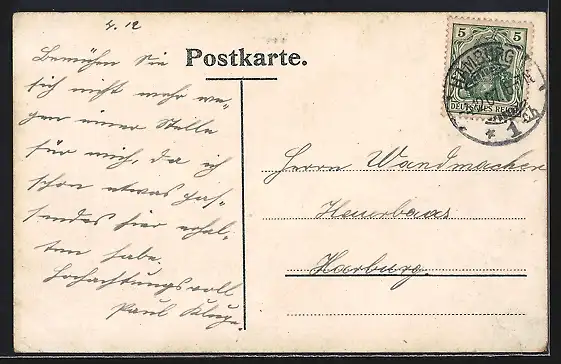 4. 12
Postkarte.
Bemühen Sie
sich nicht mehr we-
gen einer Stelle
für mich, da ich
schon etwas pas-
sendes hier erhal-
ten habe.
Hochachtungsvoll
Paul Kluge.
5 5
DEUTSCHES REICH
HAMBURG
* 1 ch
Herrn Wandmacher
Heuerbaas
Harburg.